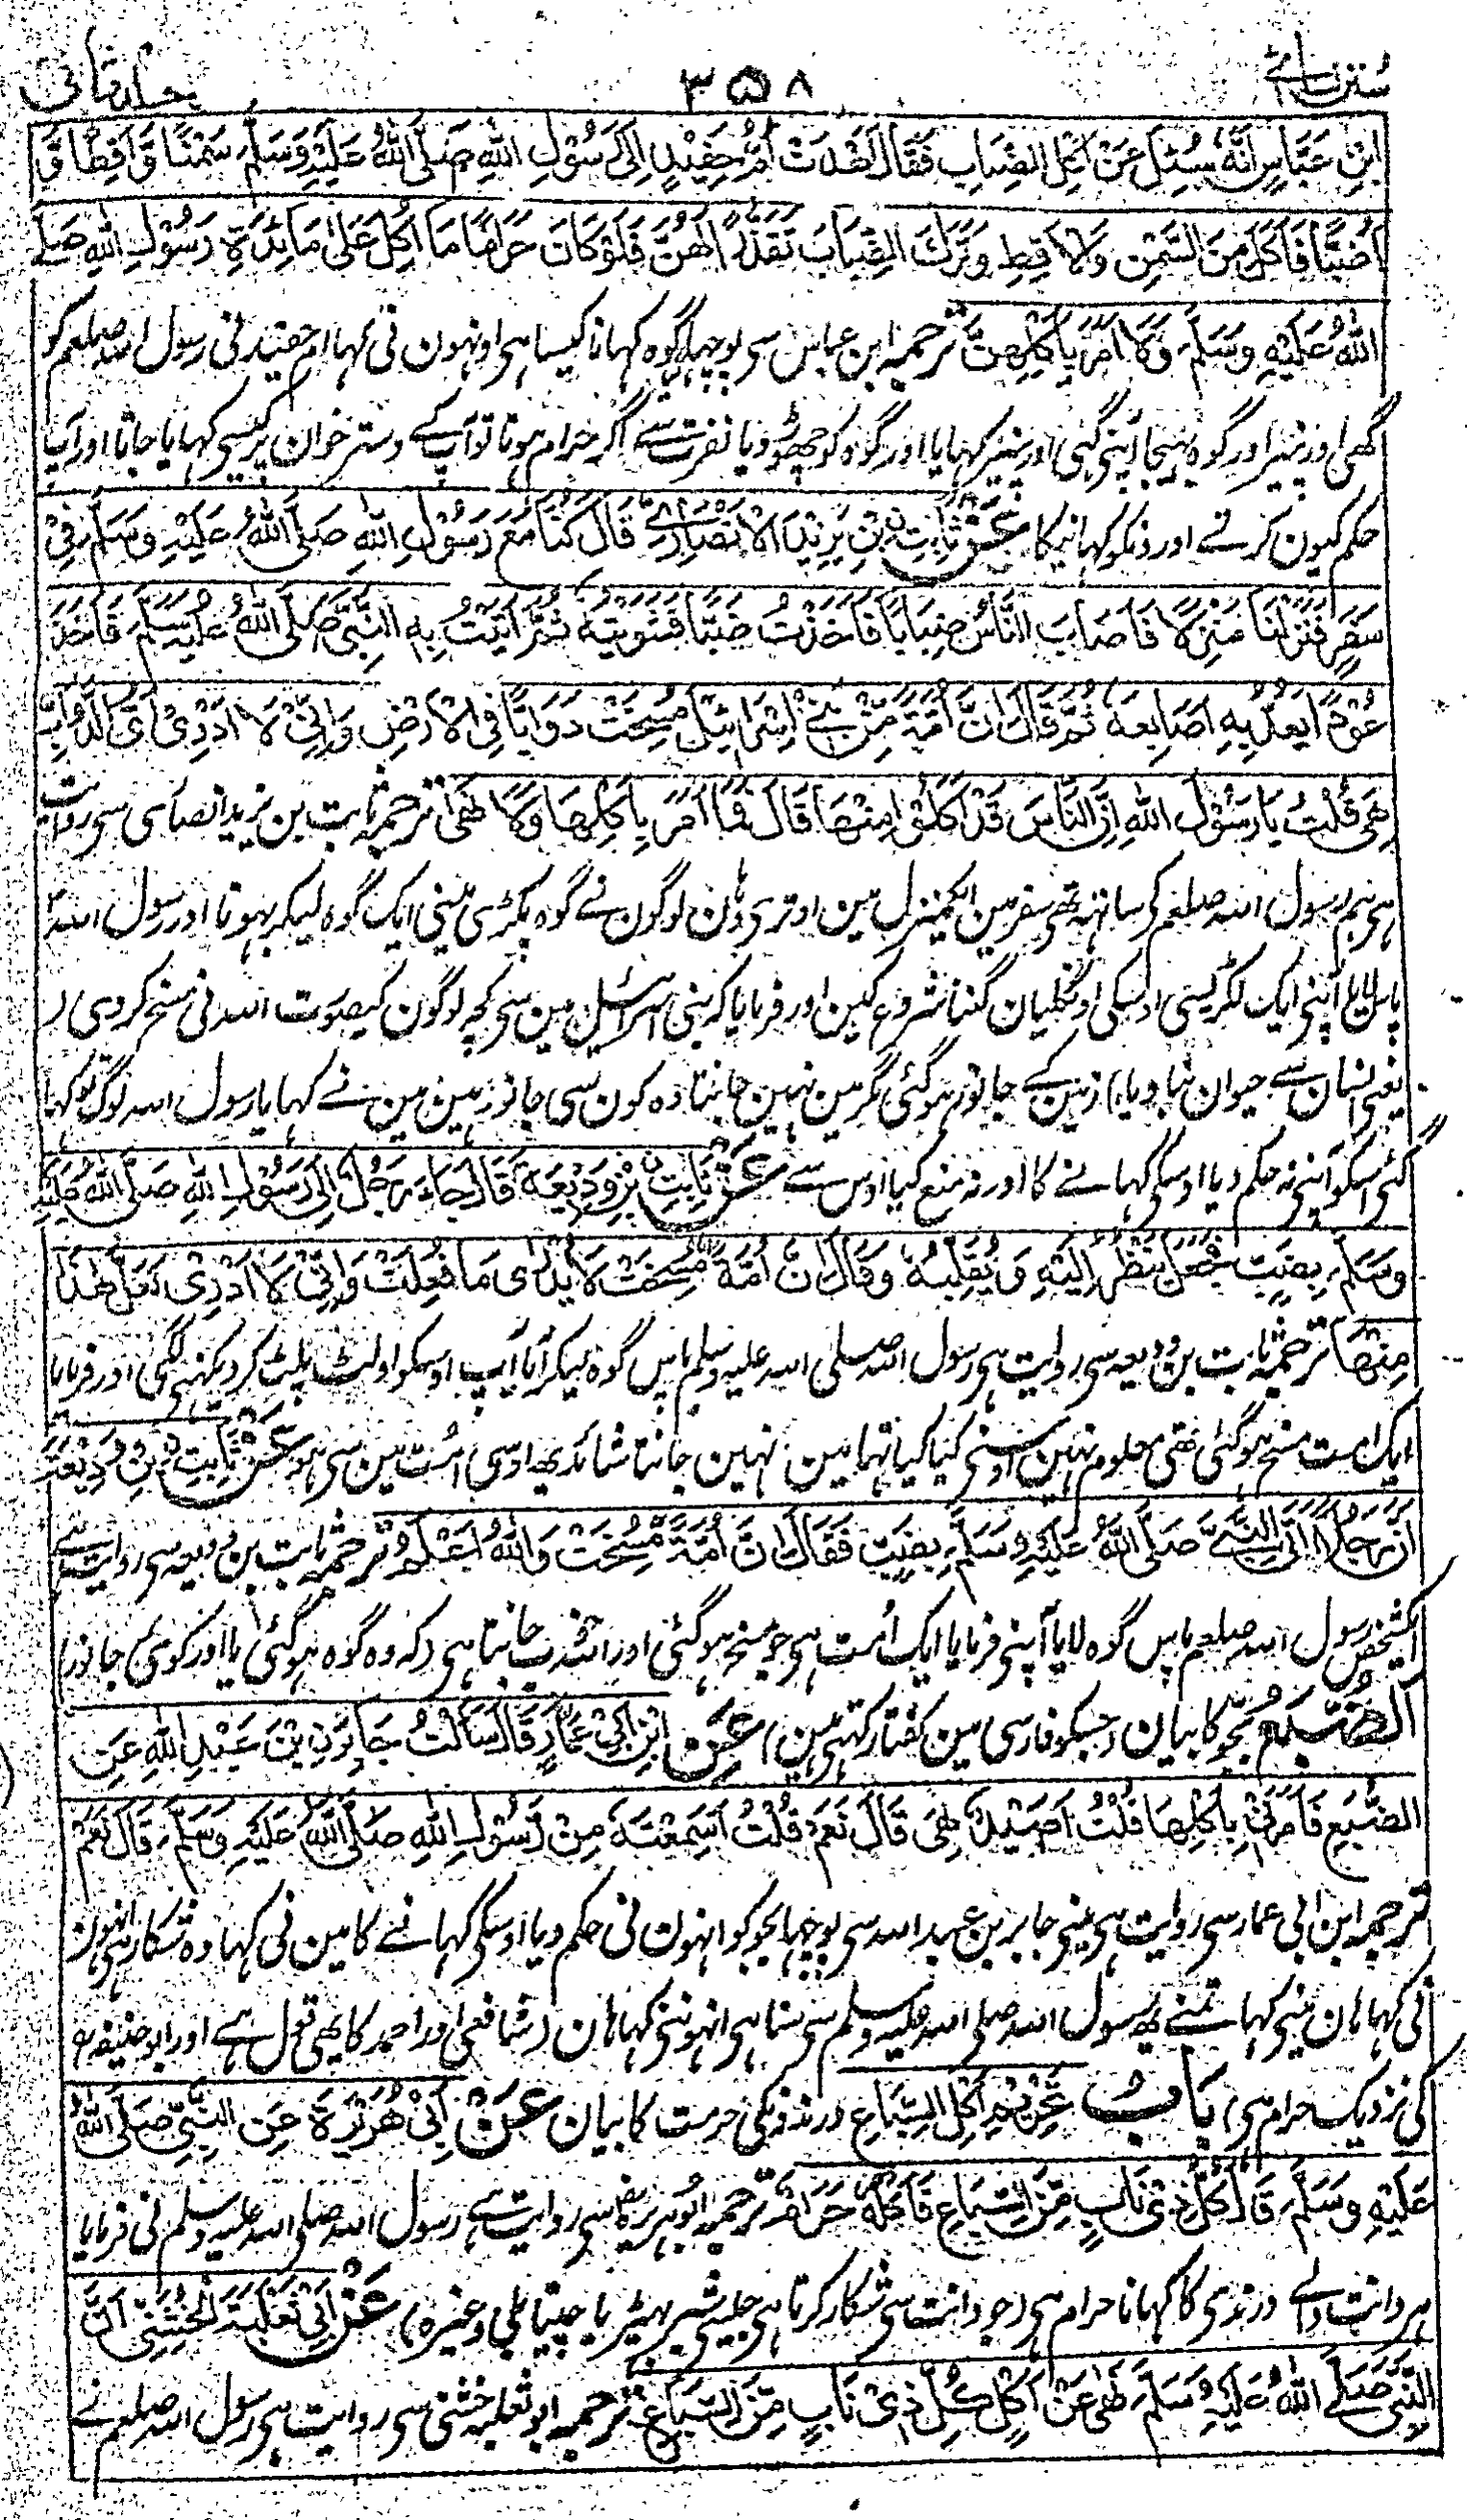 سنن نسائی ۳۵۸ جلد ثانی
ابْنِ عَبَّاسٍ اَنَّهُ سُئِلَ عَنْ اَكْلِ الضِّبَابِ فَقَالَ اَهْدَتْ اُمُّ حُفَيْدٍ اِلٰى رَسُوْلِ اللهِ صَلَّى اللهُ عَلَيْهِ وَسَلَّمَ سَمْنًا وَّاَقِطًا وَّ
اَضُبًّا فَاَكَلَ مِنَ السَّمْنِ وَالْاَقِطِ وَتَرَكَ الضِّبَابَ تَقَذُّرًا لَهُنَّ فَلَوْ كَانَ حَرَامًا مَا اُكِلَ عَلٰى مَائِدَةِ رَسُوْلِ اللهِ صَلَّى
اللهُ عَلَيْهِ وَسَلَّمَ وَلَا اَمَرَ بِاَكْلِهِنَّ ترجمہ ابن عباس سی پوچہا گوہ کہانا کیسا ہی اونہون نی کہا ام حفید نی رسول اللہ صلعم کو
گھی اور پنیر اور گوہ بہیجا آپنی گھی اور پنیر کہایا اور گوہ کو چھوڑ دیا نفرت سے اگر حرام ہوتا تو آپ کے دسترخوان پر کیسی کہایا جاتا اور آپ
حکم کیون کرتے اورونکو کہانیکا عَنْ ثَابِتِ بْنِ يَزِيْدَ الْاَنْصَارِيِّ قَالَ كُنَّا مَعَ رَسُوْلِ اللهِ صَلَّى اللهُ عَلَيْهِ وَسَلَّمَ فِيْ
سَفَرٍ فَنَزَلْنَا مَنْزِلًا فَاَصَابَ النَّاسُ ضِبَابًا فَاَخَذْتُ ضَبًّا فَشَوَيْتُهُ ثُمَّ اَتَيْتُ بِهِ النَّبِيَّ صَلَّى اللهُ عَلَيْهِ وَسَلَّمَ فَاَخَذَ
عُوْدًا يَعُدُّ بِهِ اَصَابِعَهُ ثُمَّ قَالَ اِنَّ اُمَّةً مِّنْ بَنِيْ اِسْرَائِيْلَ مُسِخَتْ دَوَابًّا فِي الْاَرْضِ وَاِنِّيْ لَا اَدْرِيْ اَيُّ الدَّوَابِّ
هِيَ قُلْتُ يَا رَسُوْلَ اللهِ اِنَّ النَّاسَ قَدْ اَكَلُوْا مِنْهَا قَالَ فَمَا اَمَرَ بِاَكْلِهَا وَلَا نَهٰى ترجمہ ثابت بن یزید انصاری سی روایت
ہی ہم رسول اللہ صلعم کی ساتہہ تھی سفر مین ایک منزل مین اوتری وہان لوگون نے گوہ پکڑی مینی ایک گوہ لیکر بہونا اور رسول اللہ
پاس لایا آپنی ایک لکڑی سی اوسکی اونگلیان گننا شروع کین اور فرمایا کہ بنی اسرائیل مین سی کچہ لوگون کیصورت اللہ نی مسخ کر دی (
یعنی انسان سے حیوان بنا دیا) زمین کے جانور ہو گئی مگر مین نہین جانتا وہ کون سی جانور ہین مین نے کہا یا رسول اللہ لوگ تو کہا
گئی اسکو آپنی نہ حکم دیا اوسکی کہانے کا اور نہ منع کیا اوس سے عَنْ ثَابِتِ بْنِ وَدِيْعَةَ قَالَ جَاءَ رَجُلٌ اِلٰى رَسُوْلِ اللهِ صَلَّى اللهُ عَلَيْهِ
وَسَلَّمَ بِضَبٍّ فَجَعَلَ يَنْظُرُ اِلَيْهِ وَيُقَلِّبُهُ وَقَالَ اِنَّ اُمَّةً مُسِخَتْ لَا يُدْرٰى مَا فَعَلَتْ وَاِنِّيْ لَا اَدْرِيْ لَعَلَّ هٰذَا
مِنْهَا ترجمہ ثابت بن ودیعہ سی روایت ہی رسول اللہ صلی اللہ علیہ وسلم پاس گوہ لیکر آیا آپ اوسکو اولٹ پلٹ کر دیکہنی لگی اور فرمایا
ایک امت مسخ ہو گئی تھی معلوم نہین اوسنی کیا کیا تہا مین نہین جانتا شائد یہ اوسی امت مین سی ہو عَنْ ثَابِتِ بْنِ وَدِيْعَةَ
اَنَّ رَجُلًا اَتَى النَّبِيَّ صَلَّى اللهُ عَلَيْهِ وَسَلَّمَ بِضَبٍّ فَقَالَ اِنَّ اُمَّةً مُّسِخَتْ وَاللهُ اَعْلَمُ ترجمہ ثابت بن ودیعہ سی روایت ہے
ایک شخص رسول اللہ صلعم پاس گوہ لایا آپنی فرمایا ایک امت ہی جو مسخ ہو گئی اور اللہ خوب جانتا ہی (کہ وہ گوہ ہو گئی یا اور کوئی جانور)
اَلضَّبُعُ بجو کا بیان (جسکو فارسی مین کفتار کہتی ہین) عَنِ ابْنِ اَبِيْ عَمَّارٍ قَالَ سَاَلْتُ جَابِرَ بْنَ عَبْدِ اللهِ عَنِ
الضَّبُعِ فَاَمَرَنِيْ بِاَكْلِهَا قُلْتُ اَصَيْدٌ هِيَ قَالَ نَعَمْ قُلْتُ اَسَمِعْتَهُ مِنْ رَسُوْلِ اللهِ صَلَّى اللهُ عَلَيْهِ وَسَلَّمَ قَالَ نَعَمْ
ترجمہ ابن ابی عمار سی روایت ہی مینی جابر بن عبد اللہ سی پوچہا بجو کو انہون نی حکم دیا اوسکی کہانے کا مین نی کہا وہ شکار ہی انہون
نی کہا ہان مینی کہا تمنے یہ رسول اللہ صلی اللہ علیہ وسلم سی سنا ہی انہونی کہا ہان (شافعی اور احمد کا یہی قول ہے اور ابو حنیفہ
کی نزدیک حرام ہی) بَابُ تَحْرِيْمِ اَكْلِ السِّبَاعِ درندونکی حرمت کا بیان عَنْ اَبِيْ هُرَيْرَةَ عَنِ النَّبِيِّ صَلَّى اللهُ
عَلَيْهِ وَسَلَّمَ قَالَ كُلُّ ذِيْ نَابٍ مِّنَ السِّبَاعِ فَاَكْلُهُ حَرَامٌ ترجمہ ابوہریرہ سی روایت ہے رسول اللہ صلی اللہ علیہ وسلم نی فرمایا
ہر دانت والے درندی کا کہانا حرام ہی (جو دانت سی شکار کرتا ہی جیسی شیر بہیڑیا چیتا بلی وغیرہ) عَنْ اَبِيْ ثَعْلَبَةَ الْخُشَنِيِّ اَنَّ
النَّبِيَّ صَلَّى اللهُ عَلَيْهِ وَسَلَّمَ نَهٰى عَنْ اَكْلِ كُلِّ ذِيْ نَابٍ مِّنَ السِّبَاعِ ترجمہ ابو ثعلبہ خشنی سی روایت ہی رسول اللہ صلعم نے